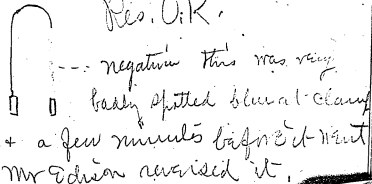 Res. O.K.
negative this was very
badly spotted blue at clamp
+ a few minutes before it went
Mr Edison reversed it.